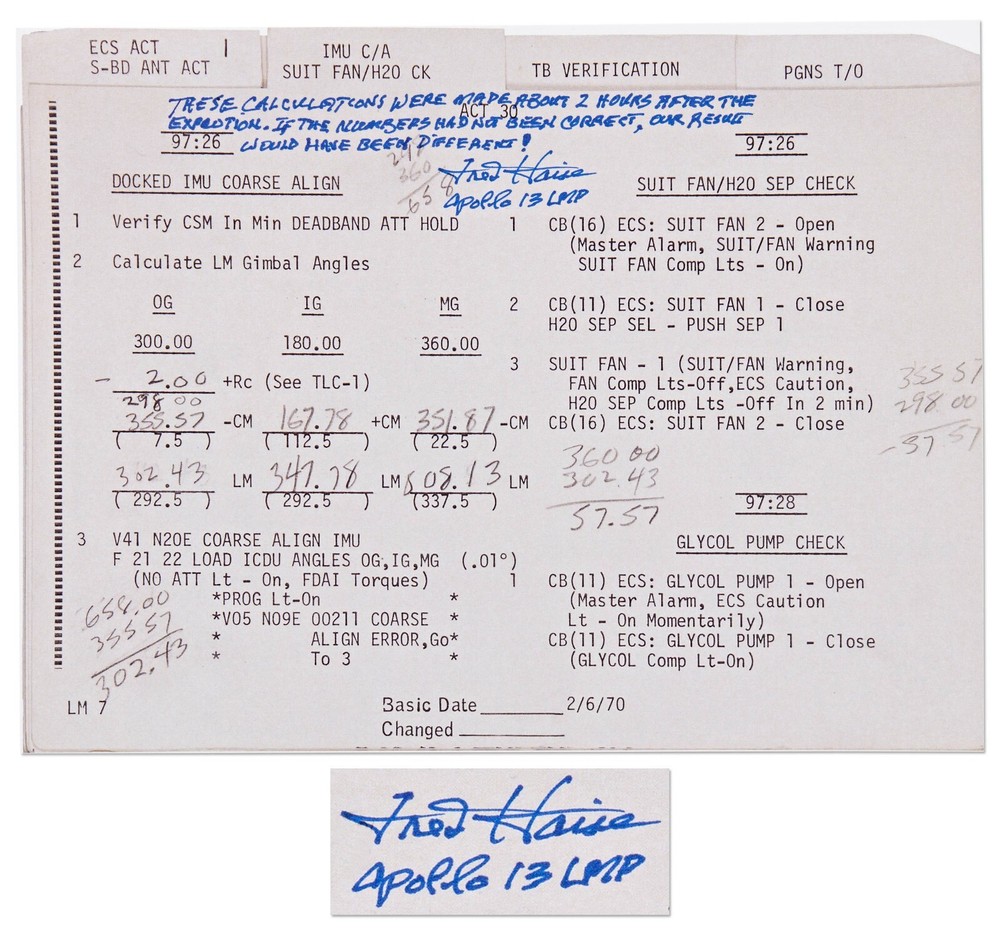 ECS ACT 1
S-BD ANT ACT
IMU C/A
SUIT FAN/H2O CK
TB VERIFICATION
PGNS T/O
ACT 30
THESE CALCULATIONS WERE MADE ABOUT 2 HOURS AFTER THE
EXPLOTION. IF THE NUMBERS HAD NOT BEEN CORRECT, OUR RESULT
WOULD HAVE BEEN DIFFERENT!
Fred Haise
Apollo 13 LMP
97:26
298
360
658
DOCKED IMU COARSE ALIGN
1 Verify CSM In Min DEADBAND ATT HOLD
2 Calculate LM Gimbal Angles
OG IG MG
300.00 180.00 360.00
- 2.00 +Rc (See TLC-1)
298 00
355.57 -CM 167.78 +CM 351.87 -CM
( 7.5 ) (112.5 ) ( 22.5 )
302.43 LM 347.78 LM 008.13 LM
( 292.5 ) ( 292.5 ) (337.5 )
3 V41 N20E COARSE ALIGN IMU
F 21 22 LOAD ICDU ANGLES OG,IG,MG (.01°)
(NO ATT Lt - On, FDAI Torques)
*PROG Lt-On *
*V05 N09E 00211 COARSE *
* ALIGN ERROR,Go*
* To 3 *
658.00
355 57
302.43
97:26
SUIT FAN/H2O SEP CHECK
1 CB(16) ECS: SUIT FAN 2 - Open
(Master Alarm, SUIT/FAN Warning
SUIT FAN Comp Lts - On)
2 CB(11) ECS: SUIT FAN 1 - Close
H2O SEP SEL - PUSH SEP 1
3 SUIT FAN - 1 (SUIT/FAN Warning,
FAN Comp Lts-Off,ECS Caution,
H2O SEP Comp Lts -Off In 2 min)
CB(16) ECS: SUIT FAN 2 - Close
355 57
298 00
-57 57
360 00
302.43
57.57
97:28
GLYCOL PUMP CHECK
1 CB(11) ECS: GLYCOL PUMP 1 - Open
(Master Alarm, ECS Caution
Lt - On Momentarily)
CB(11) ECS: GLYCOL PUMP 1 - Close
(GLYCOL Comp Lt-On)
LM 7
Basic Date 2/6/70
Changed
Fred Haise
Apollo 13 LMP